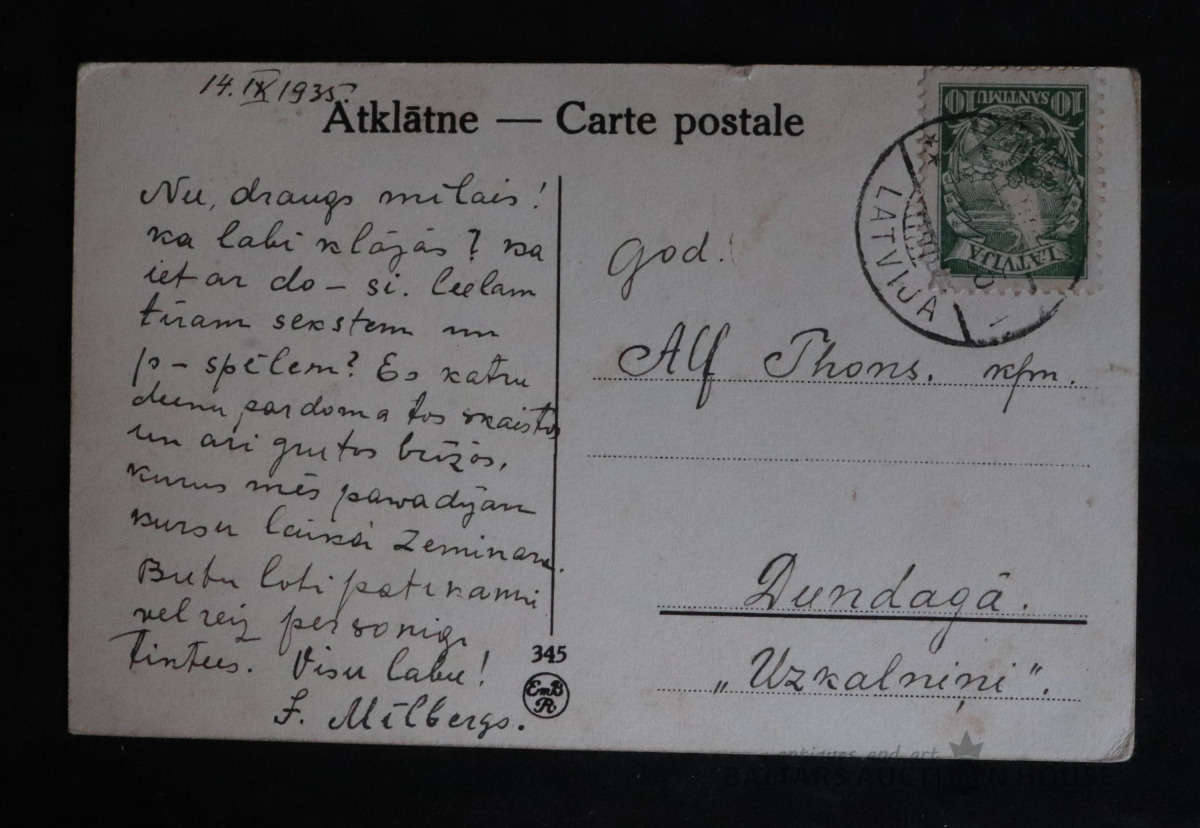 14. IX 1935
Atklātne — Carte postale
Nu, draugs mīlais!
ka labi klājās? ka
iet ar do – si. leelam
tīram sekstem un
p – spēlem? Es katru
deenu pardoma tos skaistos
un ari grutos brīžos,
kurus mēs pawadījam
kursu laikai Zeminara.
Butu loti patikami
vel reiz personigi
tiktees. Visu labu!
F. Mīlbergs.
345
EmB
R
10 SANTIMU 10
LATVIJA
LATVIJA
god.
Alf Thons. kfm.
Dundagā.
„Uzkalniņi".
antiques and art
BALTARS AUCTION HOUSE